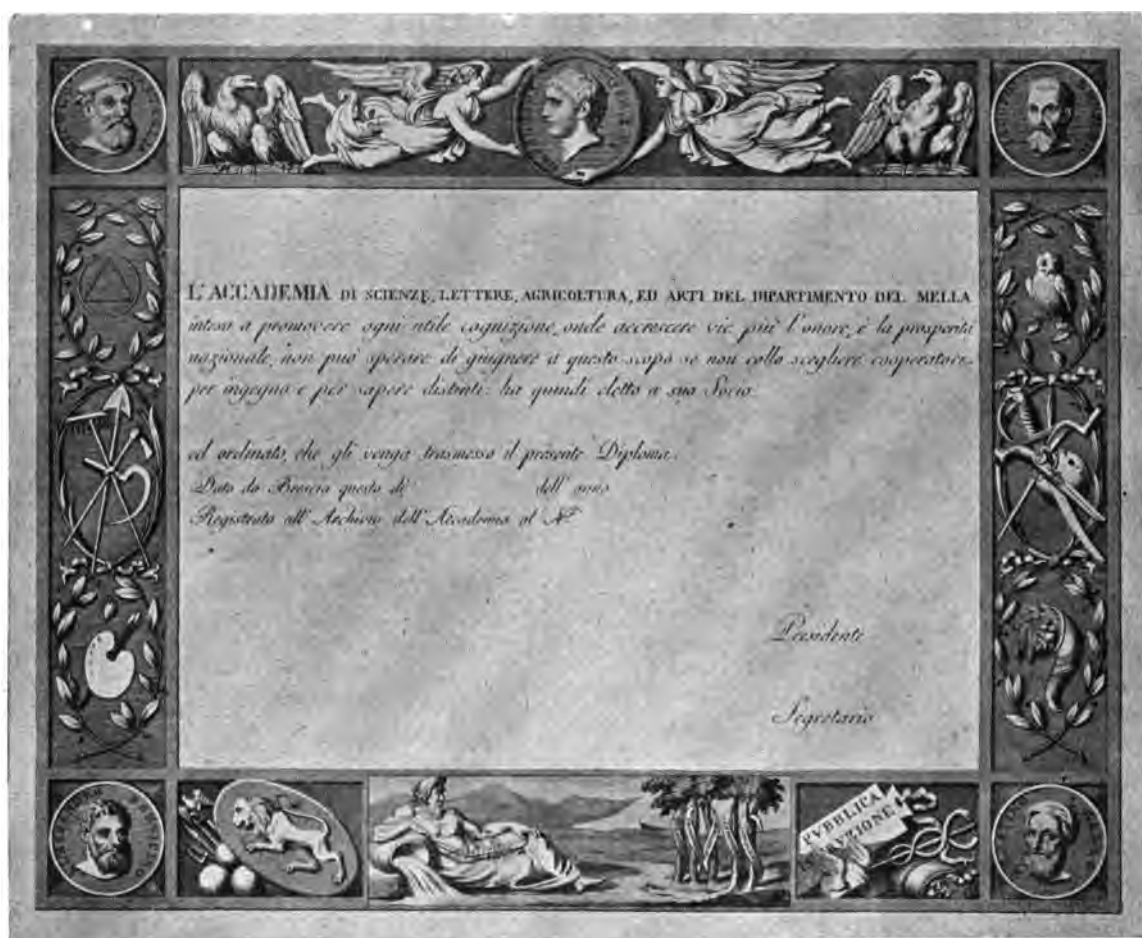 L'ACCADEMIA DI SCIENZE, LETTERE, AGRICOLTURA, ED ARTI DEL DIPARTIMENTO DEL MELLA
intesa a promovere ogni utile cognizione, onde accrescere vie più l'onore, e la prosperità
nazionale, non può sperare di giugnere a questo scopo se non collo scegliere cooperatori
per ingegno e per sapere distinti: ha quindi eletto a suo Socio
ed ordinato, che gli venga trasmesso il presente Diploma.
Dato da Brescia questo dì dell' anno
Registrato all' Archivio dell' Accademia al N.º
Presidente
Segretario
PVBBLICA